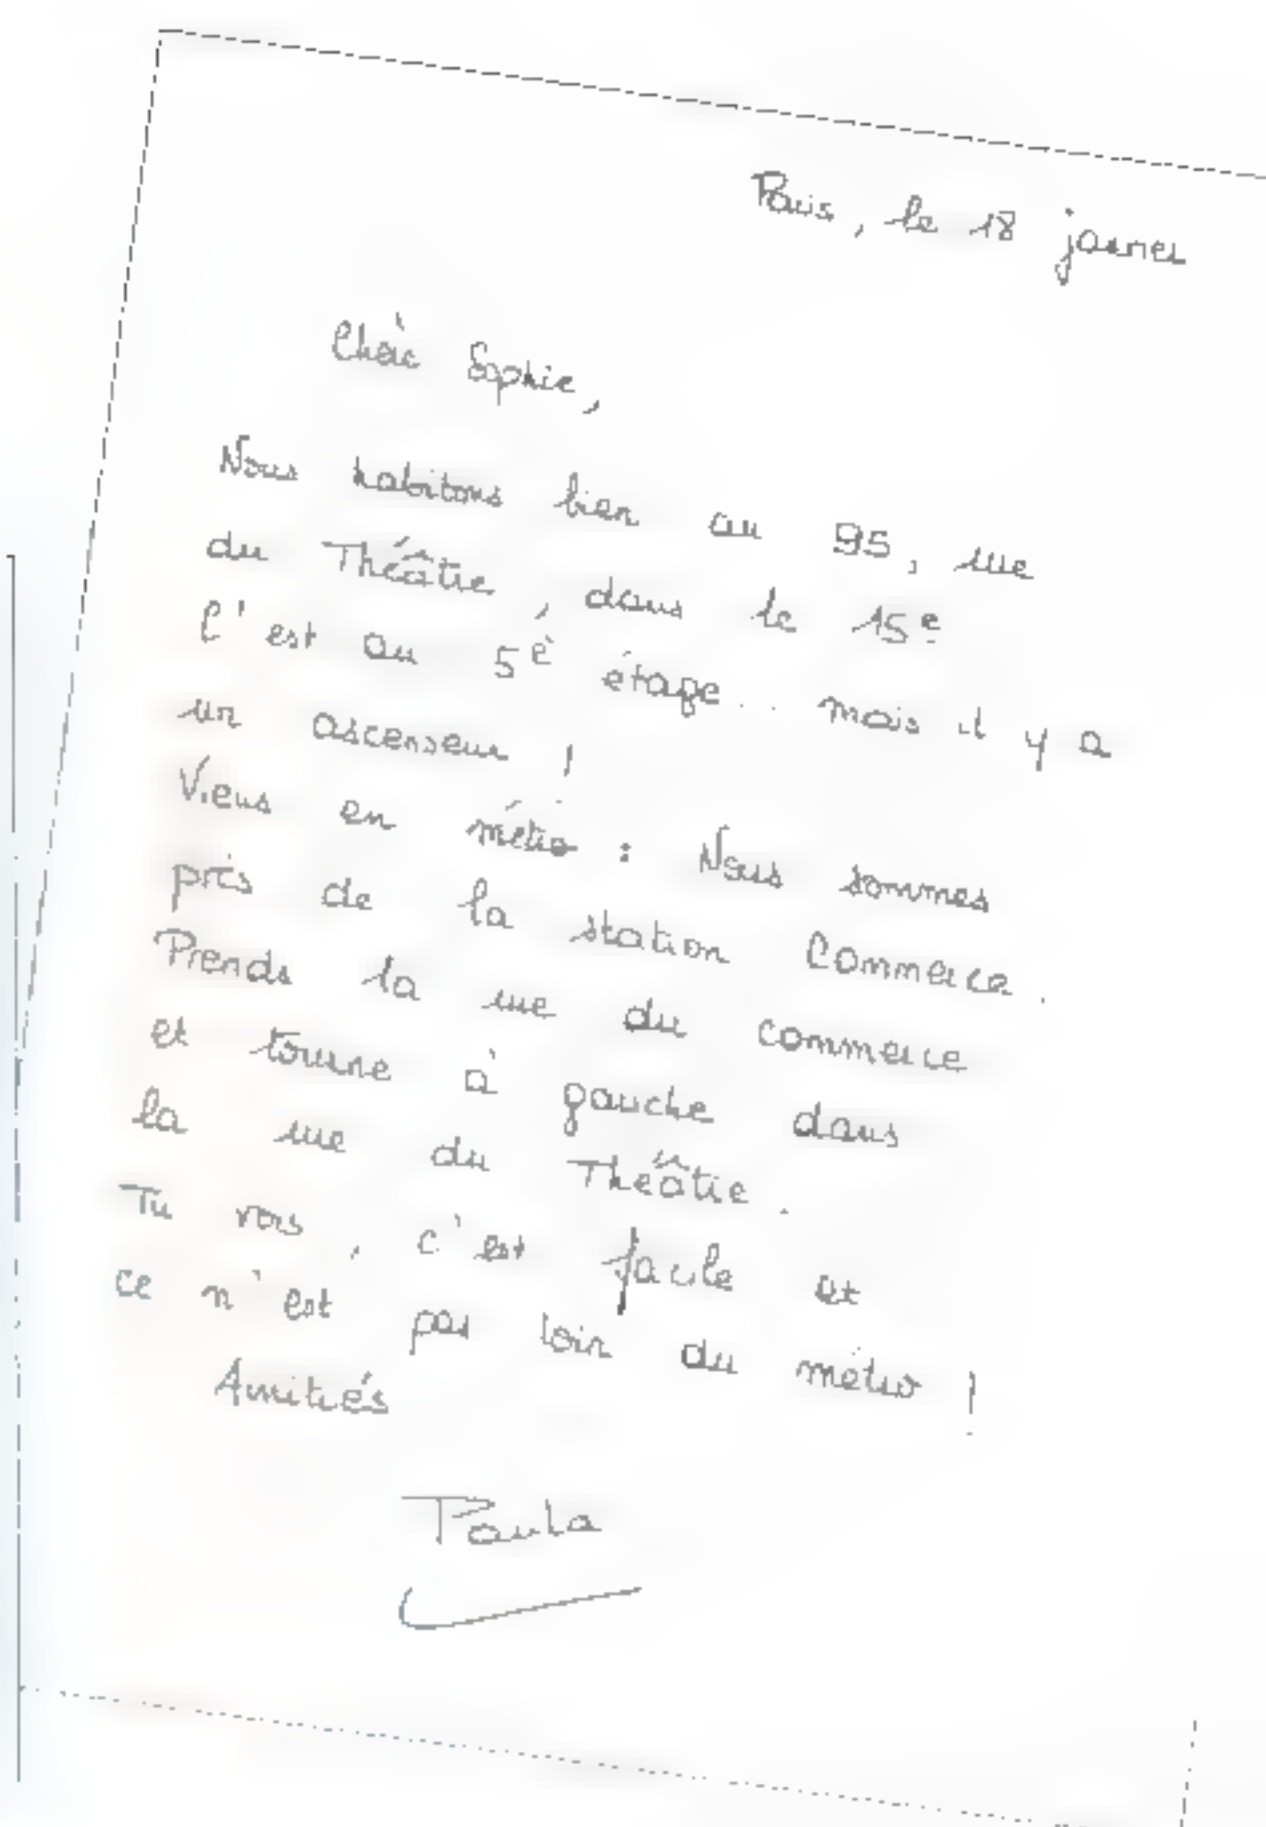 Paris, le 18 janvier
Chère Sophie,
Nous habitons bien au 95, rue
du Théâtre, dans le 15e
C'est au 5è étage... mais il y a
un ascenseur !
Viens en métro : Nous sommes
près de la station Commerce.
Prends la rue du commerce
et tourne à gauche dans
la rue du Théâtre.
Tu vois, c'est facile et
ce n'est pas loin du métro !
Amitiés
Paula